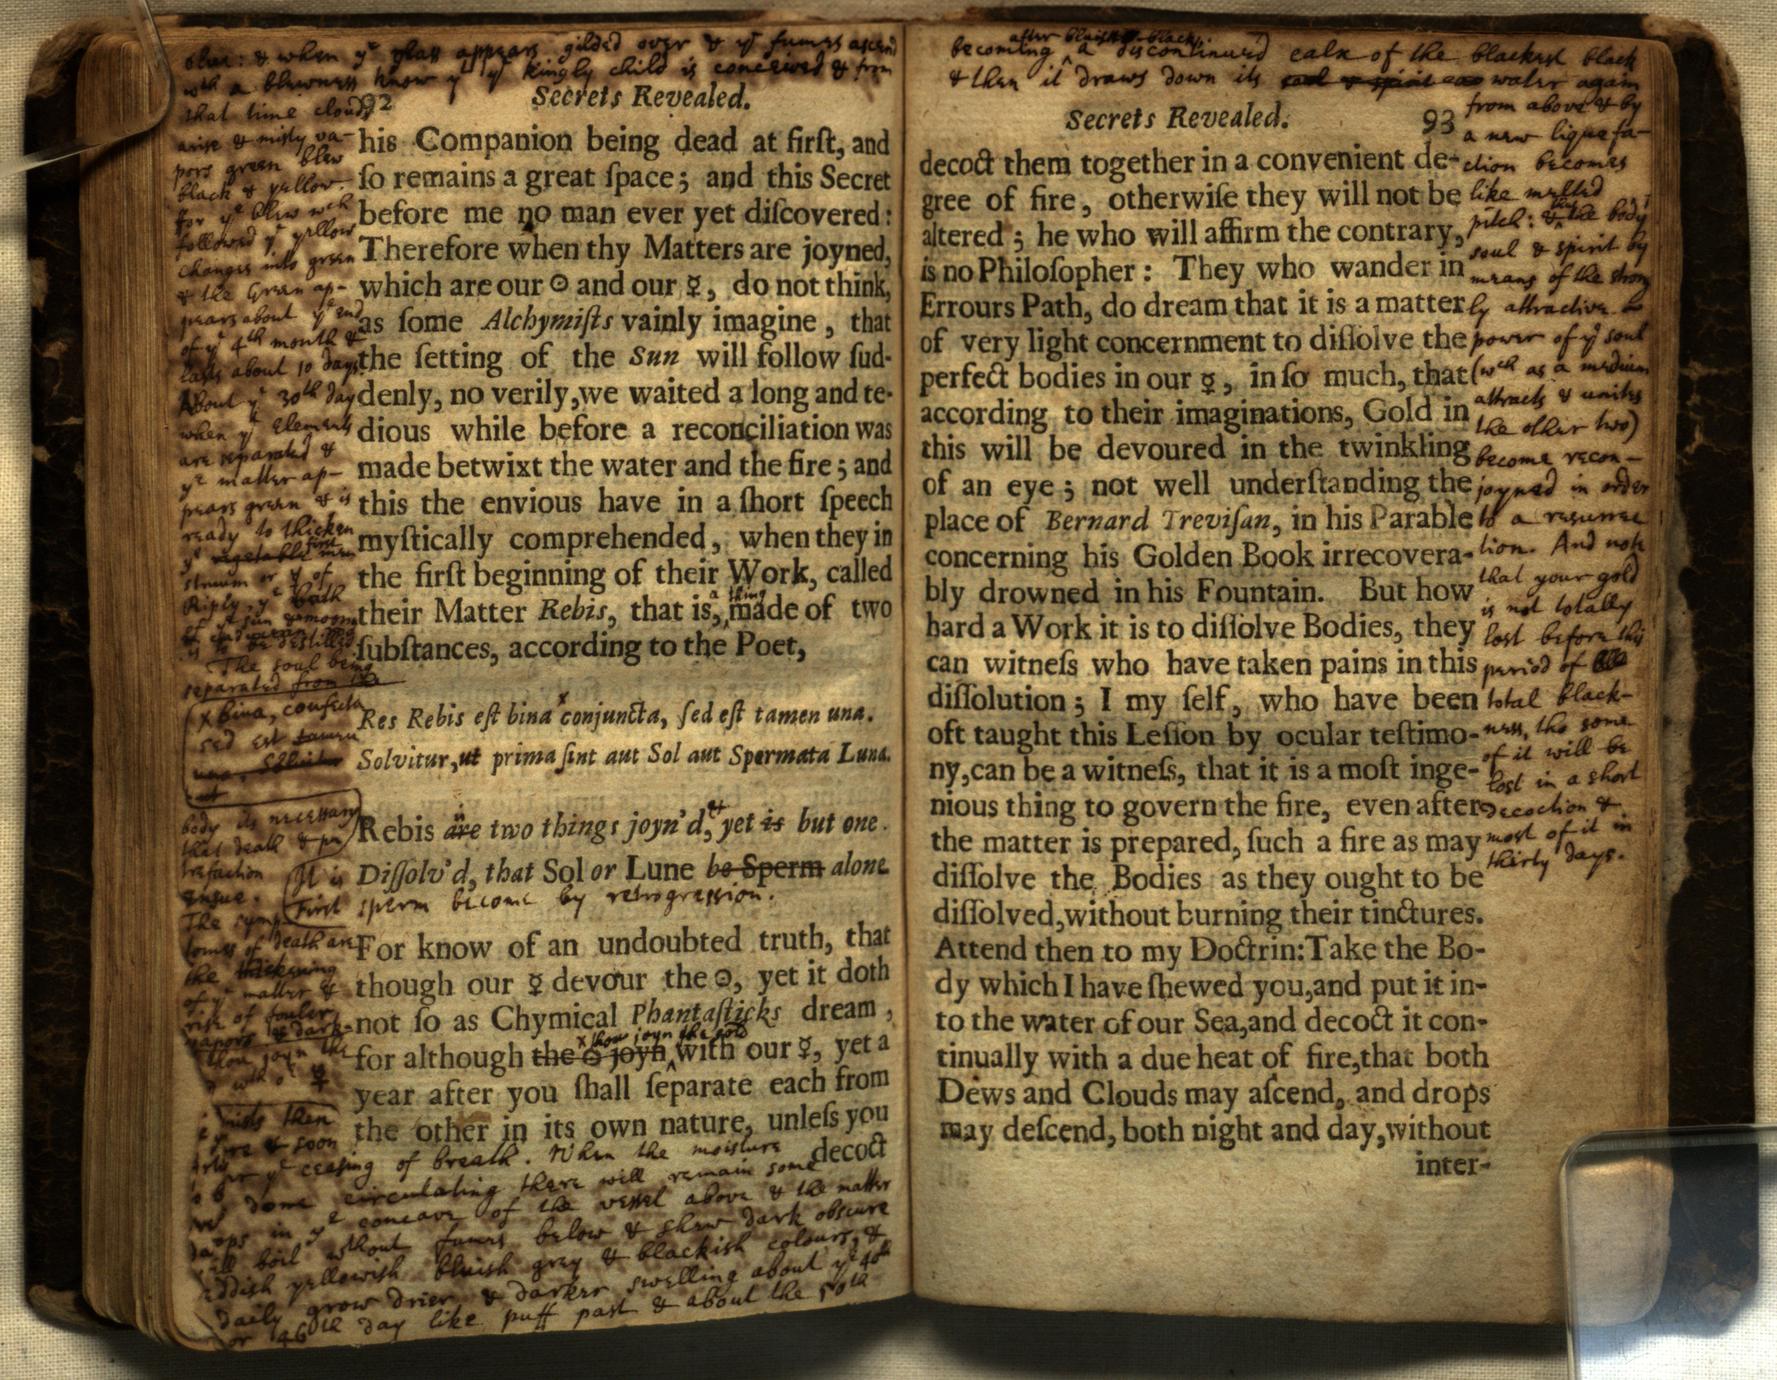 blew: & when yᵉ glass appears gilded over & yᵉ fumes ascend
wᵗʰ a blewness know yᵗ yᵉ kingly child is conceived & from
that time clouds
arise & misty va-
pors green blew
black & yellow.
for yᵉ blew wᶜʰ
followed yᵉ yellow
changes into green
& the Green ap-
pears about yᵉ end
of yᵉ 4ᵗʰ month &
lasts about 10 days.
About yᵉ 30ᵗʰ day
when yᵉ Elements
are separated &
yᵉ matter ap-
pears green & is
ready to thicken
yᵉ vegetable
or yᵗ of
Riply, yᵉ bath
yᵉ sun & moon
The soul being
separated from
x bina, confecta
sed est tamen
una. Solvitur
ut
body its necessary
that death & pu-
trefaction
ensue.
It is
First
The symp-
tomes of death are
the thickening
of yᵉ matter &
rise of fouler
vapors & dark-
thou joyn the
☿
mists then
fire & soon
92
Secrets Revealed.
his Companion being dead at firſt, and
ſo remains a great ſpace; and this Secret
before me no man ever yet diſcovered:
Therefore when thy Matters are joyned,
which are our ☉ and our ☿, do not think,
as ſome Alchymiſts vainly imagine, that
the ſetting of the Sun will follow ſud-
denly, no verily, we waited a long and te-
dious while before a reconciliation was
made betwixt the water and the fire; and
this the envious have in a ſhort ſpeech
myſtically comprehended, when they in
the firſt beginning of their Work, called
a thing
their Matter Rebis, that is, made of two
ſubſtances, according to the Poet,
x
Res Rebis eſt bina conjuncta, ſed eſt tamen una.
Solvitur, ut prima ſint aut Sol aut Spermata Luna.
is &
Rebis are two things joyn'd, yet is but one.
Diſſolv'd, that Sol or Lune be Sperm alone
sperm become by retrogression.
For know of an undoubted truth, that
though our ☿ devour the ☉, yet it doth
not ſo as Chymical Phantaſticks dream,
x thou joyn the gold
for although the ☉ joyn with our ☿, yet a
year after you ſhall ſeparate each from
the other in its own nature, unleſs you
decoct
for yᵉ ceasing of breath. When the moisture
has done circulating there will remain some
drops in yᵉ concave of the vessel above & the matter
will boil without fumes below & shew dark obscure
reddish yellowish bluish grey & blackish colours, &
daily grow drier & darker swelling about yᵉ 40ᵗʰ
or 46ᵗʰ day like puff past & about the 50ᵗʰ
after bluish black
becoming a discontinued calx of the blackest black
& then it draws down its soul & spirit water again
from above & by
a new liquefa-
ction becomes
like melted
pitch: & the body
soul & spirit by
means of the strong-
ly attractive
power of yᵉ soul
(wᶜʰ as a medium
attracts & unites
the other two)
become recon-
joyned in order
to a resurrec-
tion. And note
that your gold
is not totally
lost before this
period of
total black-
ness, tho some
of it will be
lost in a short
decoction &
most of it in
thirty days.
Secrets Revealed.
93
decoct them together in a convenient de-
gree of fire, otherwiſe they will not be
altered; he who will affirm the contrary,
is no Philoſopher: They who wander in
Errours Path, do dream that it is a matter
of very light concernment to diſſolve the
perfect bodies in our ☿, in ſo much, that
according to their imaginations, Gold in
this will be devoured in the twinkling
of an eye; not well underſtanding the
place of Bernard Treviſan, in his Parable
concerning his Golden Book irrecovera-
bly drowned in his Fountain. But how
hard a Work it is to diſſolve Bodies, they
can witneſs who have taken pains in this
diſſolution; I my ſelf, who have been
oft taught this Leſſon by ocular teſtimo-
ny, can be a witneſs, that it is a moſt inge-
nious thing to govern the fire, even after
the matter is prepared, ſuch a fire as may
diſſolve the Bodies as they ought to be
diſſolved, without burning their tinctures.
Attend then to my Doctrin: Take the Bo-
dy which I have ſhewed you, and put it in-
to the water of our Sea, and decoct it con-
tinually with a due heat of fire, that both
Dews and Clouds may aſcend, and drops
may deſcend, both night and day, without
inter-